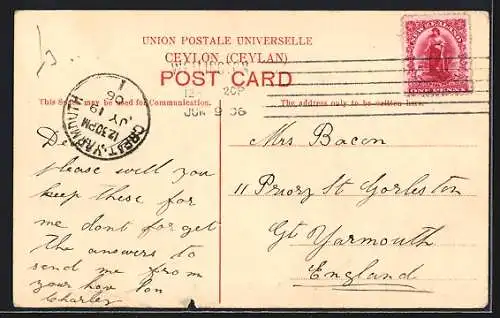 UNION POSTALE UNIVERSELLE
CEYLON (CEYLAN)
POST CARD
This Space may be used for Communication.
The address only to be written here.
NEW ZEALAND
ONE PENNY
20P
JUN 9 06
GREAT YARMOUTH
12.30PM
JY 19
06
De
please will you
keep these for
me dont forget
the answers to
send me from
your Son
Charley
Mrs Bacon
11 Priory St Gorleston
Gt Yarmouth
England